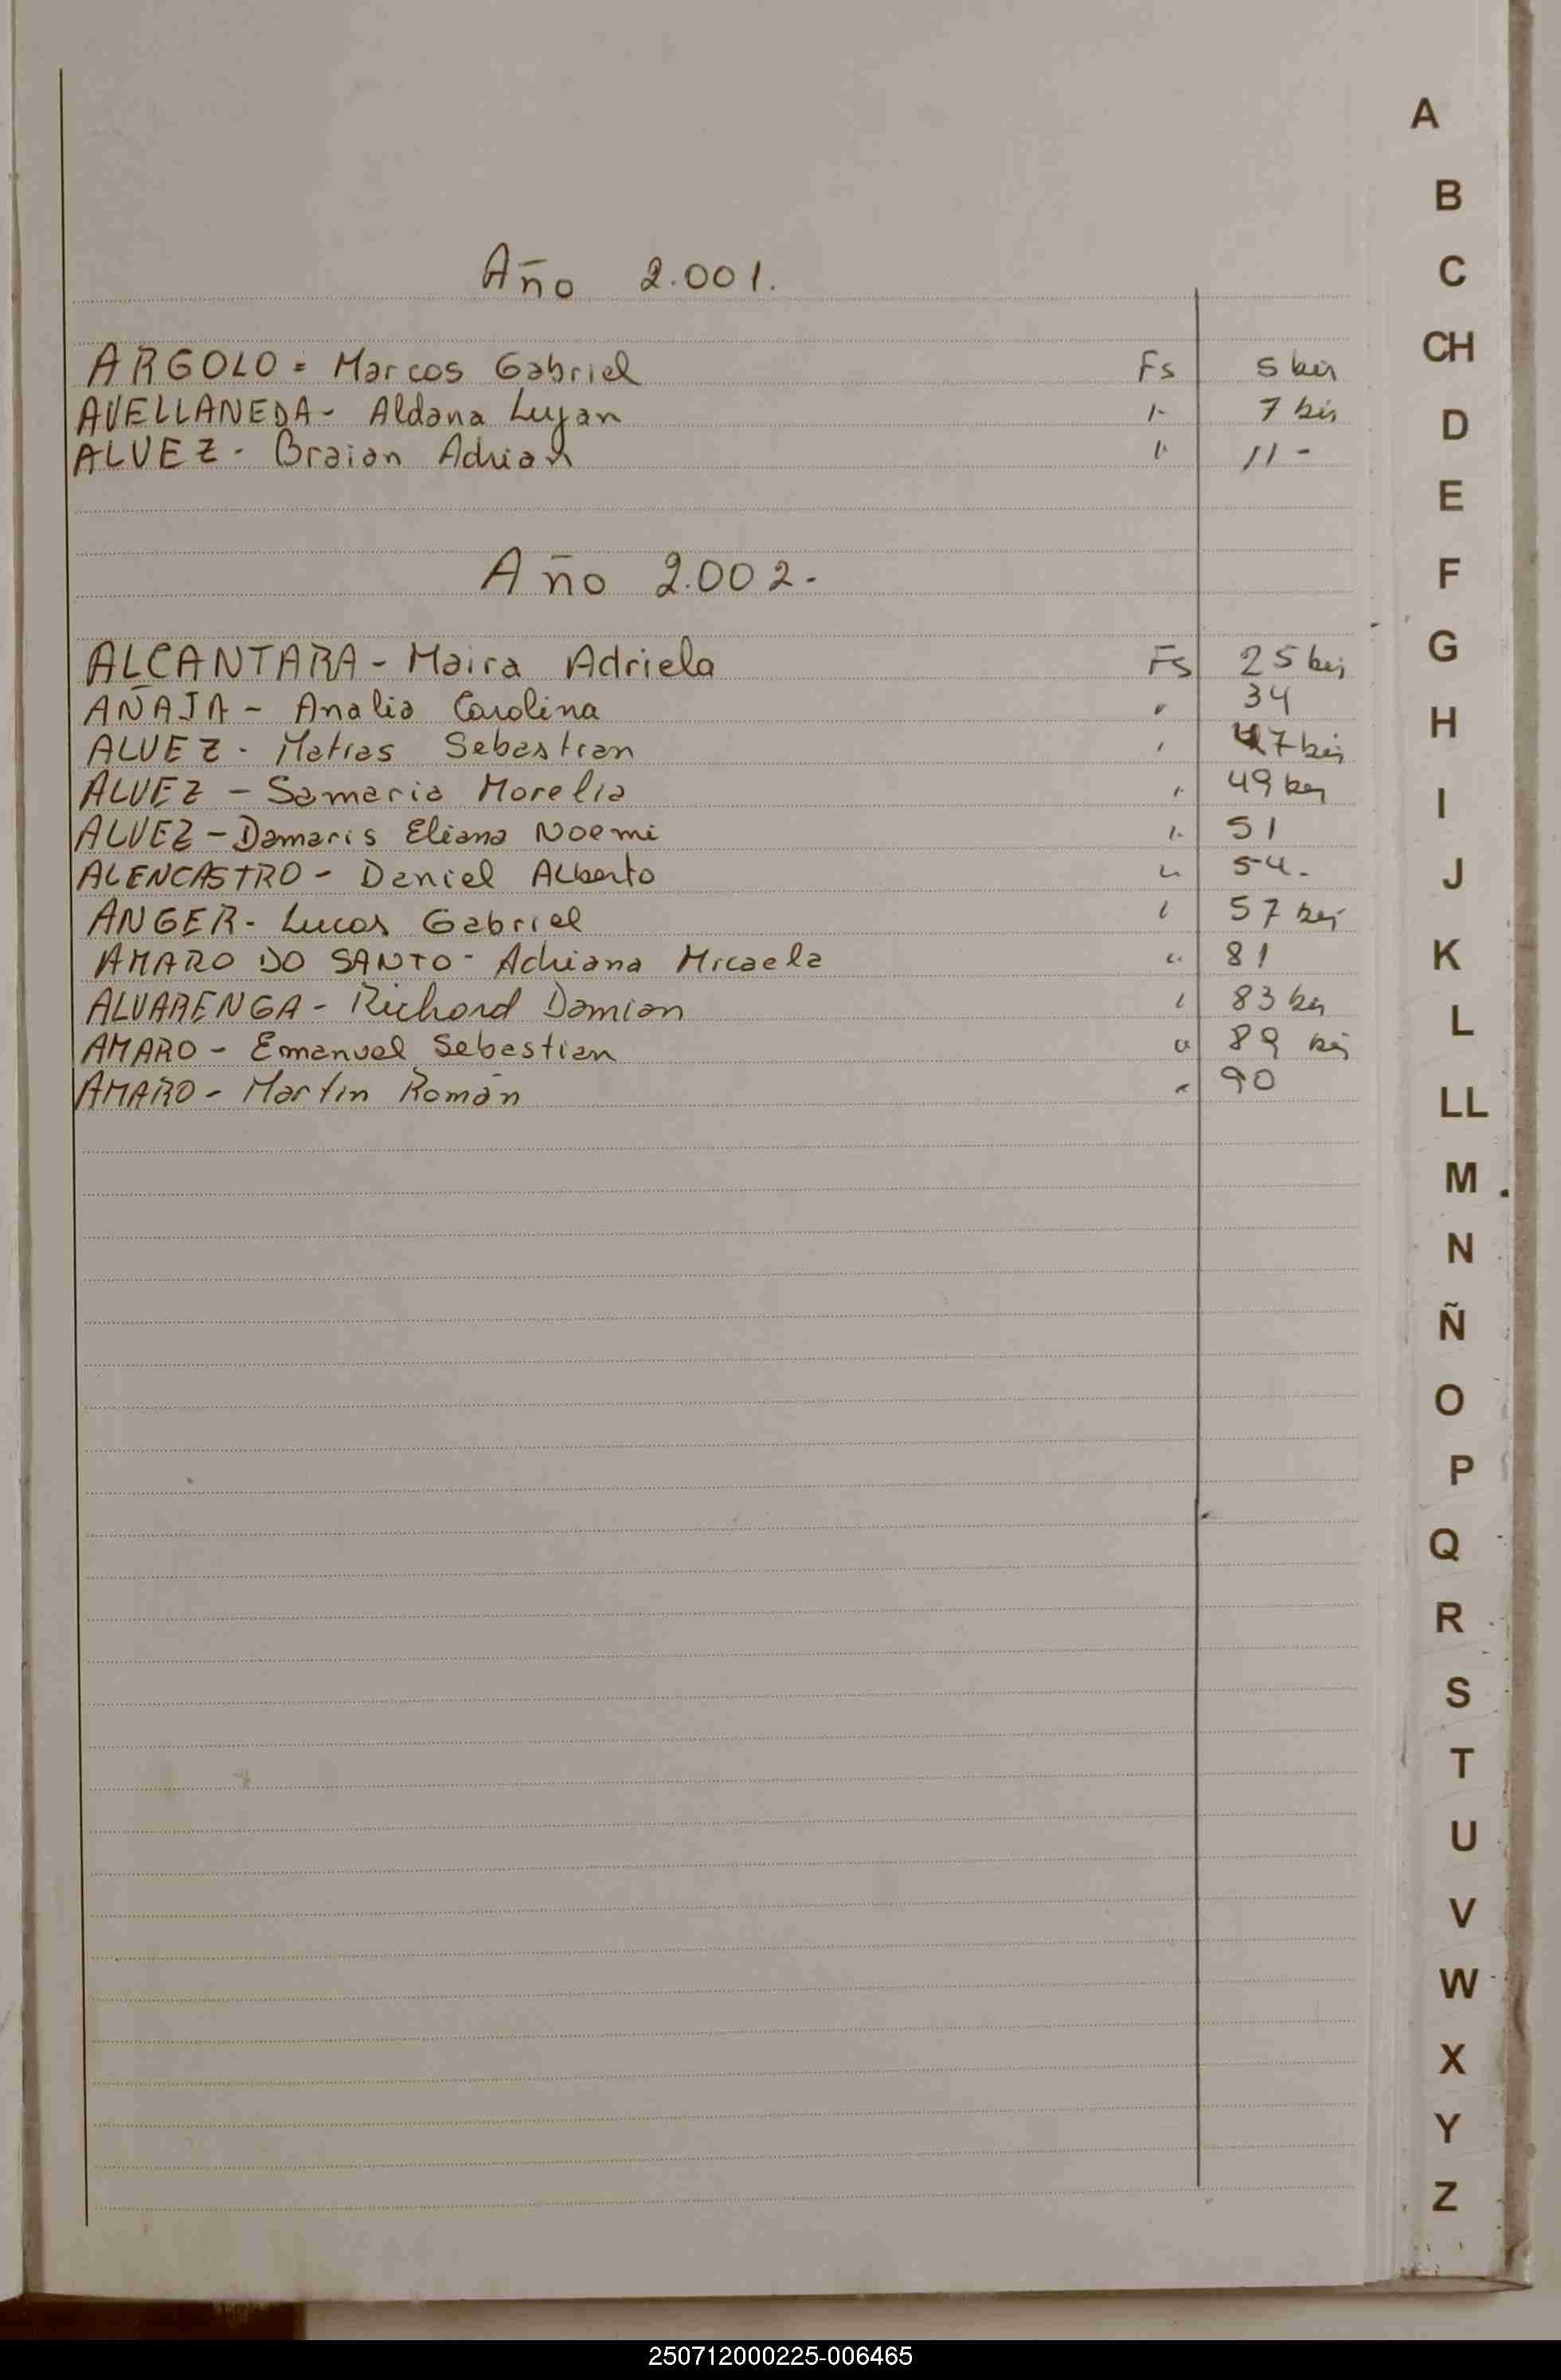 Año 2.001.
ARGOLO = Marcos Gabriel Fs 5 bis
AVELLANEDA - Aldana Lujan " 7 bis
ALVEZ - Braian Adrian " 11 -
Año 2.002.-
ALCANTARA - Maira Adriela Fs 25 bis
AÑAJA - Analia Carolina " 34
ALVEZ - Matias Sebastian " 47 bis
ALVEZ - Samaria Morelia " 49 bis
ALVEZ - Damaris Eliana Noemi " 51
ALENCASTRO - Daniel Alberto " 54.
ANGER - Lucas Gabriel " 57 bis
AMARO DO SANTO - Adriana Micaela " 81
ALVARENGA - Richard Damian " 83 bis
AMARO - Emanuel Sebastian " 89 bis
AMARO - Martin Román " 90
A
B
C
CH
D
E
F
G
H
I
J
K
L
LL
M
N
Ñ
O
P
Q
R
S
T
U
V
W
X
Y
Z
250712000225-006465